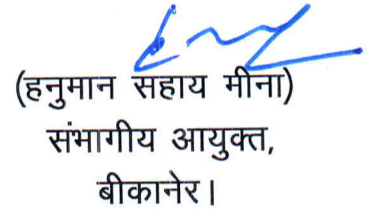 (हनुमान सहाय मीना)
संभागीय आयुक्त,
बीकानेर।